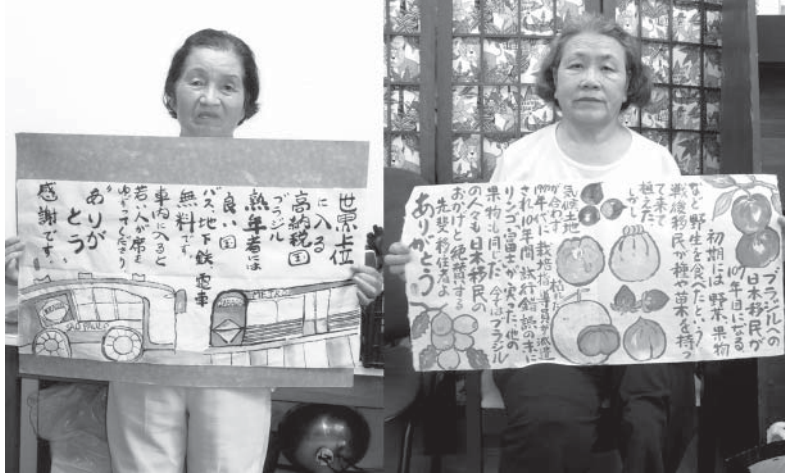 世界上位
に入る
高納税国
ブラジル
熟年者には
良い国
バス、地下鉄、電車
無料です。
車内に入ると
若い人が席を
ゆずってくださり
ありが
とう
感謝です。
SÃO PAULO
METRO
ブラジルへの
日本移民が
107年目になる。
初期には野菜、果物
など野生を食べたという
戦後移民が種や苗木を持っ
て来て
植えた。
しかし
気候土地
が合わず
され10年間試行錯誤の末に
リンゴ富士が実った他の
果物も同じだ 今ではブラジル
の人々も日本移民の
おかげと絶讃する
先輩移住者よ
ありがとう